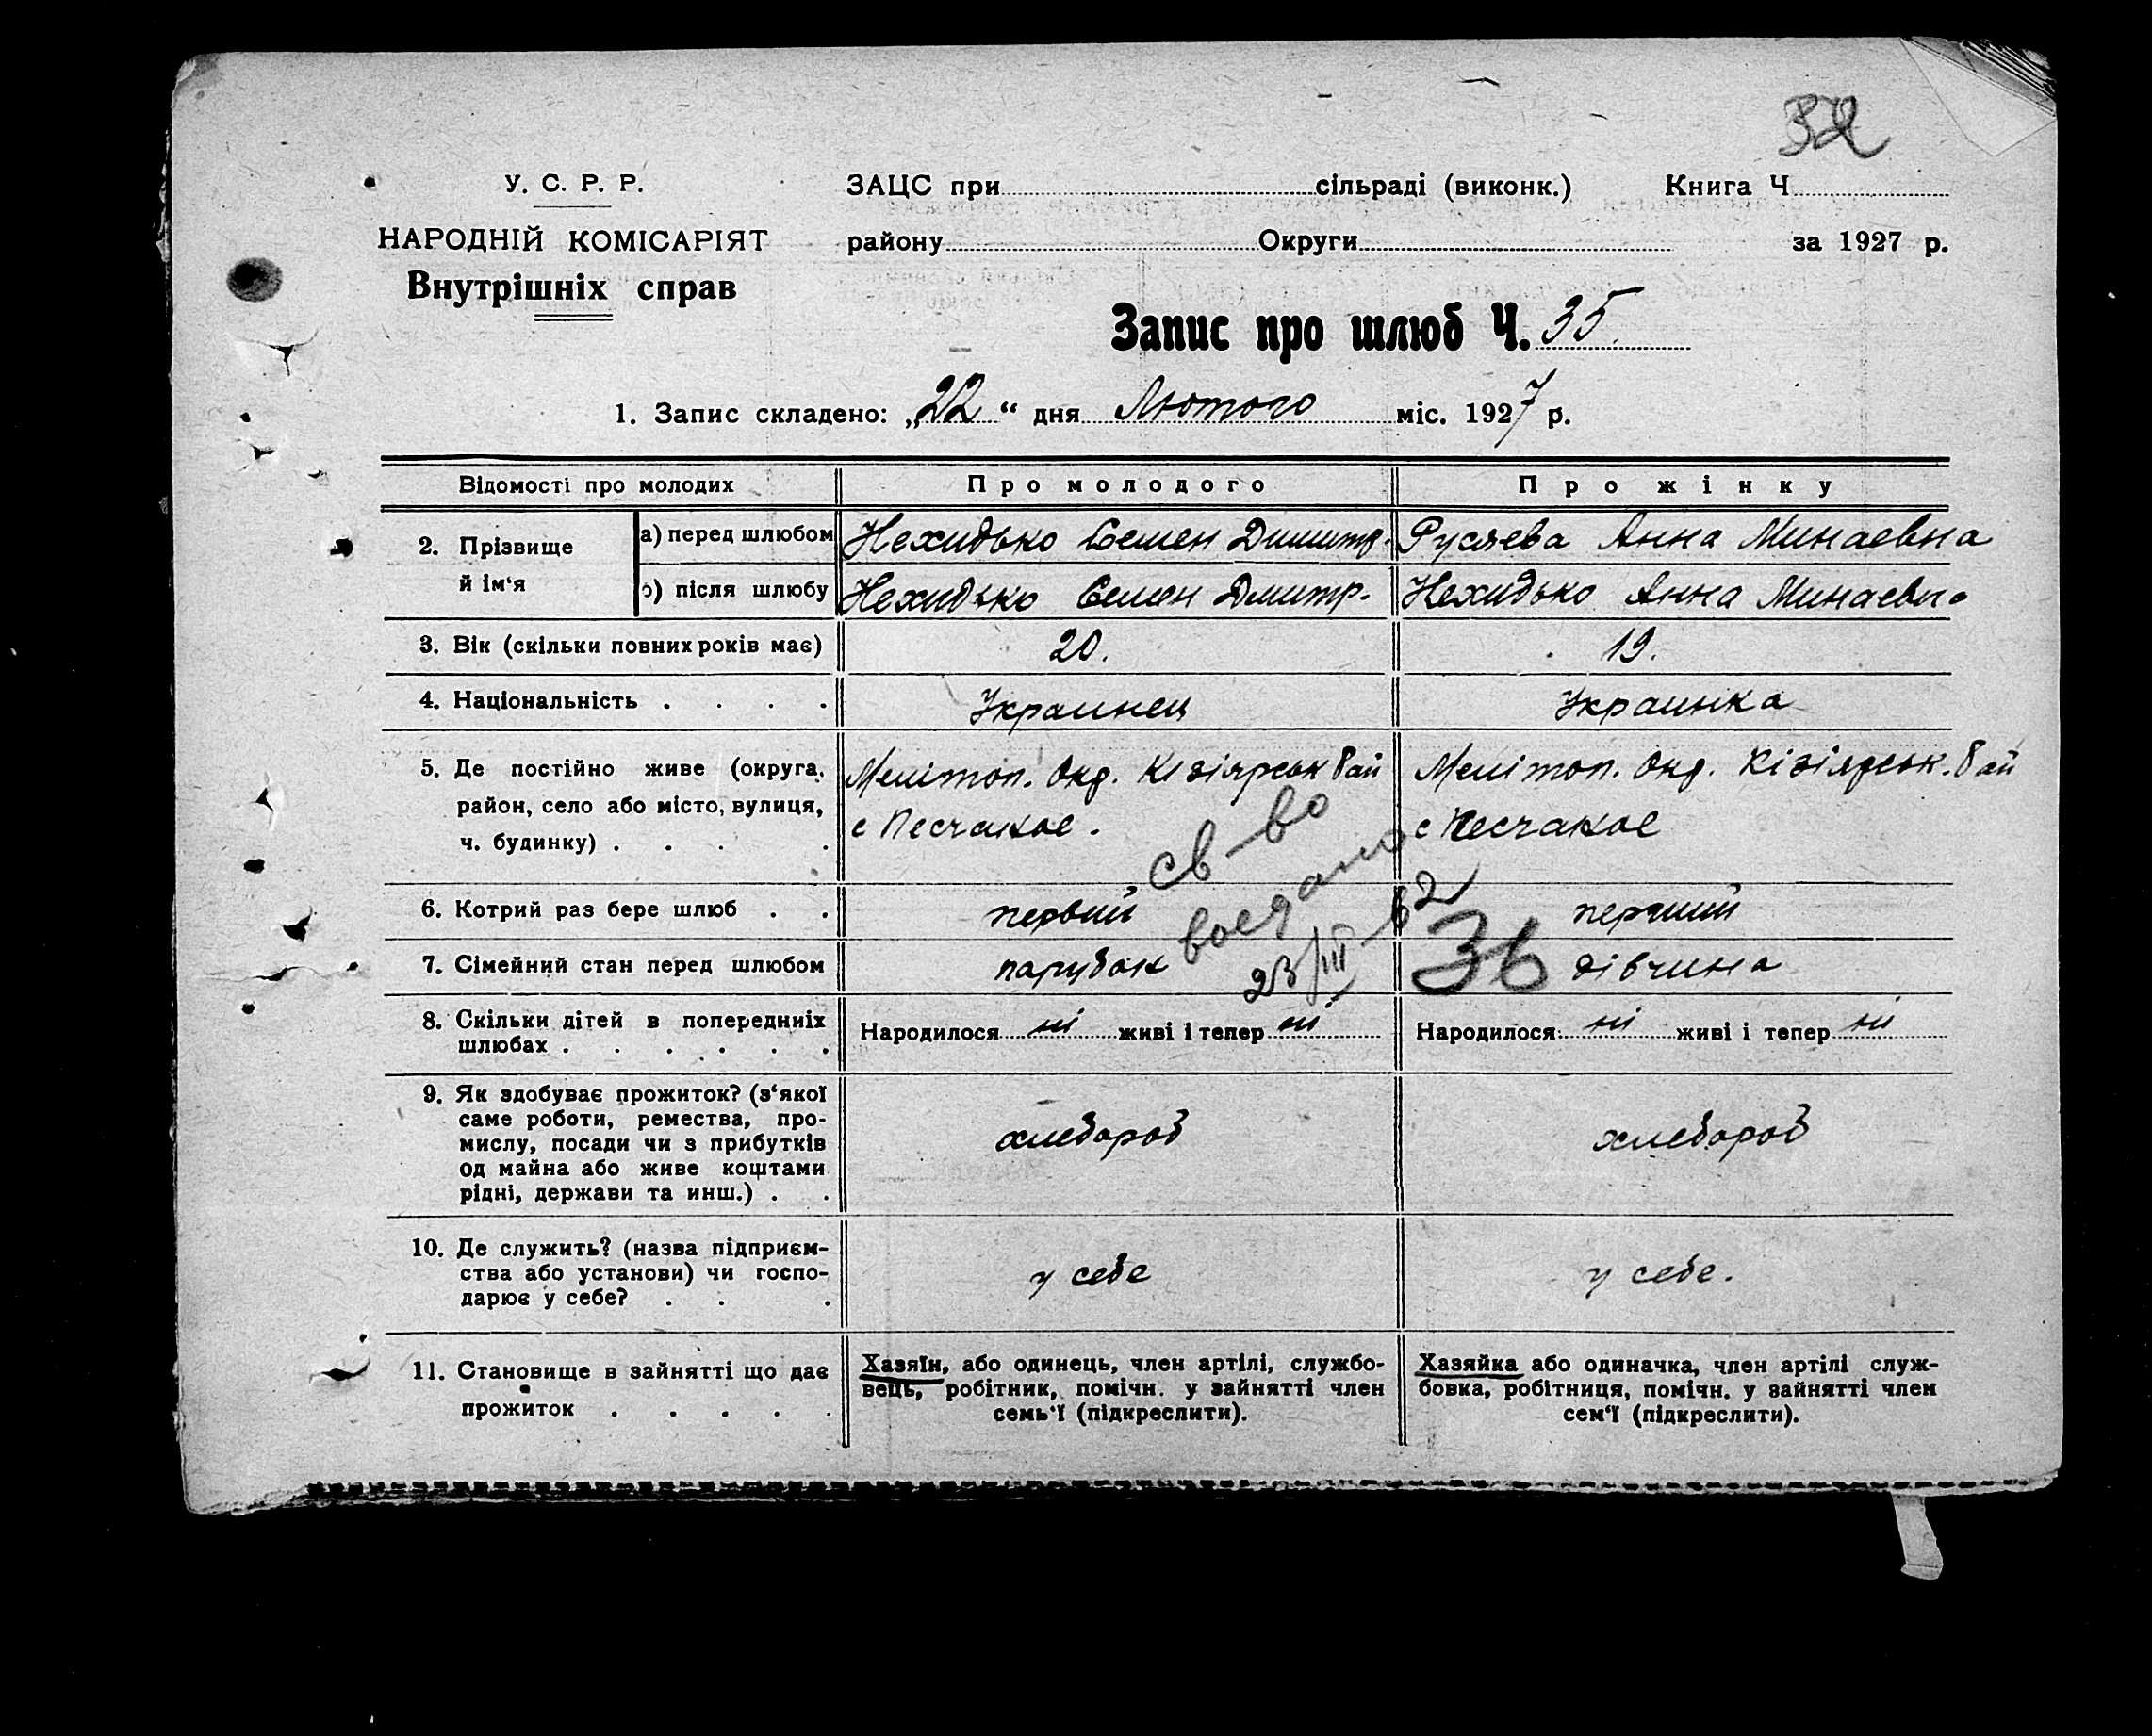 32
У. С. Р. Р.
НАРОДНІЙ КОМІСАРІЯТ
Внутрішніх справ
ЗАЦС при сільраді (виконк.) Книга Ч
району Округи за 1927 р.
Запис про шлюб Ч. 35.
1. Запис складено: „22“ дня Лютого міс. 1927 р.
Відомості про молодих
Про молодого
Про жінку
2. Прізвище й ім‘я
а) перед шлюбом
Нехидько Семен Димитр.
Русяева Анна Минаевна
б) після шлюбу
Нехидько Семен Дмитр.
Нехидько Анна Минаевн
3. Вік (скільки повних років має)
20.
19.
4. Національність . . . .
Украинец
Украинка
5. Де постійно живе (округа,
район, село або місто, вулиця,
ч. будинку) . . . .
Мелітоп. Окр. Кізіярськ Рай
с Песчакое .
Мелітоп. Окр. Кізіярськ. Рай
с Песчакое
св-во
6. Котрий раз бере шлюб . .
первий
перший
23/III-62
36
7. Сімейний стан перед шлюбом
парубок
дівчина
8. Скільки дітей в попередниіх
шлюбах . . . . . .
Народилося ні живі і тепер ні
Народилося ні живі і тепер ні
9. Як здобуває прожиток? (з‘якої
саме роботи, ремества, про-
мислу, посади чи з прибутків
од майна або живе коштами
рідні, держави та инш.) . .
хлебороб
хлебороб
10. Де служить? (назва підприєм-
ства або установи) чи госпо-
дарює у себе? . . .
у себе
у себе.
11. Становище в зайнятті що дає
прожиток . . . . .
Хазяїн, або одинець, член артілі, службо-
вець, робітник, помічн. у зайнятті член
семь‘ї (підкреслити).
Хазяйка або одиначка, член артілі служ-
бовка, робітниця, помічн. у зайнятті член
сем‘ї (підкреслити).